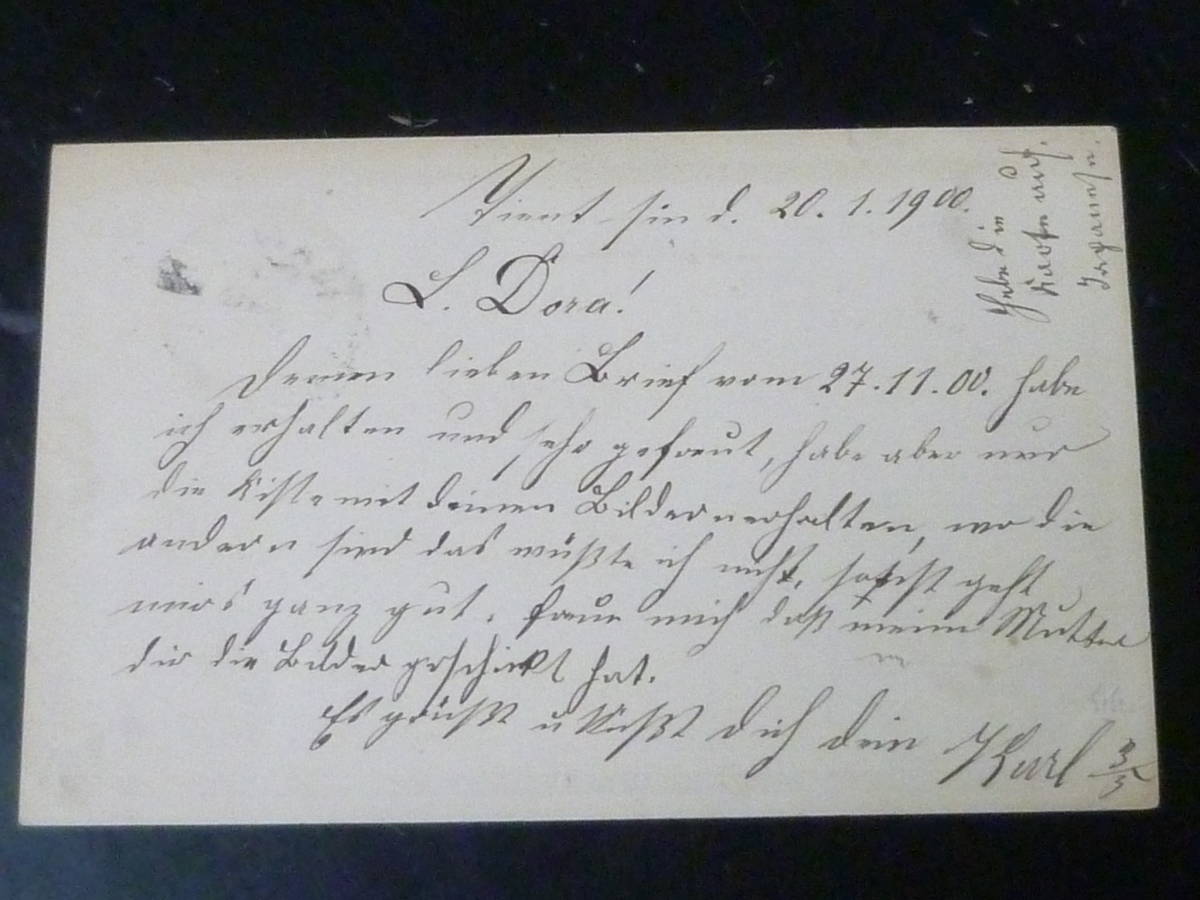 Tient-sin d. 20. 1. 1900.
L. Dora!
Deinen lieben Brief vom 27.11.00. habe
ich erhalten und sehr gefreut, habe aber nur
die Kiste mit deinen Bildern erhalten, wo die
andern sind das wüßte ich nicht, sonst geht
mirs ganz gut. freue mich daß meine Mutter
dir die Bilder geschickt hat.
Es grüßt u küßt dich dein Karl
Habe die
Karte auf